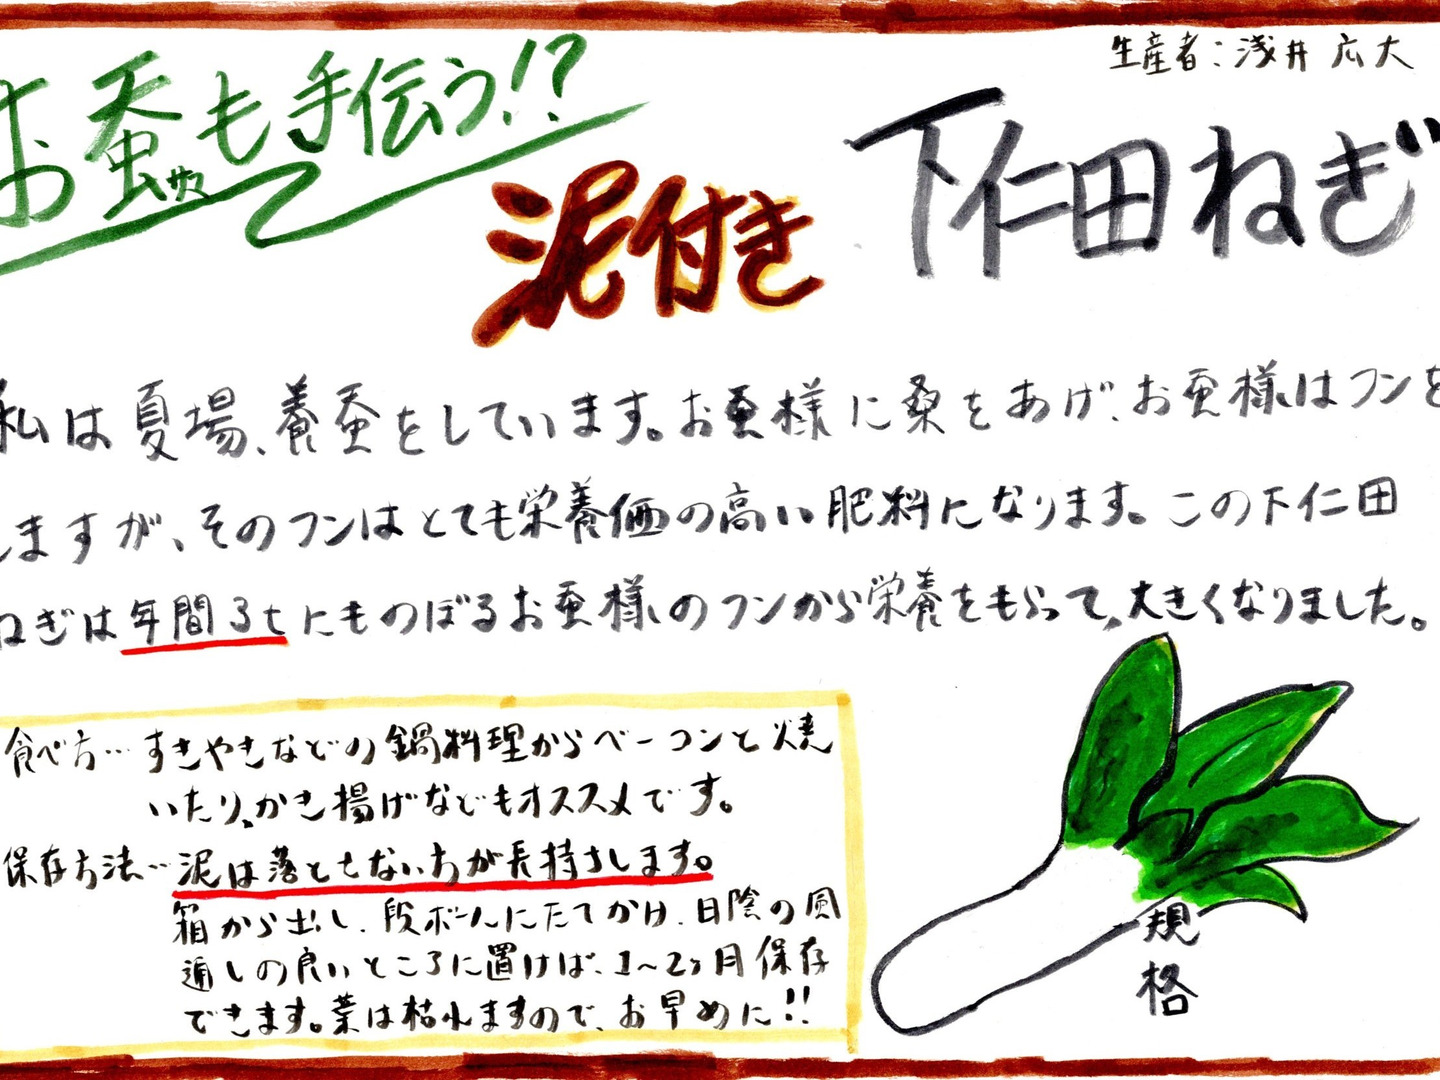 生産者:浅井 広大
お蚕様も手伝う!?
泥付き
下仁田ねぎ
私は夏場、養蚕をしています。お蚕様に桑をあげ、お蚕様はフンを
しますが、そのフンはとても栄養価の高い肥料になります。この下仁田
ねぎは年間3tにものぼるお蚕様のフンから栄養をもらって、大きくなりました。
食べ方…すきやきなどの鍋料理からベーコンと焼
いたり、かき揚げなどもオススメです。
保存方法…泥は落とさない方が長持ちします。
箱から出し、段ボールにたてかけ、日陰の風
通しの良いところに置けば、1〜2ヶ月保存
できます。葉は枯れますので、お早めに!!
規
格